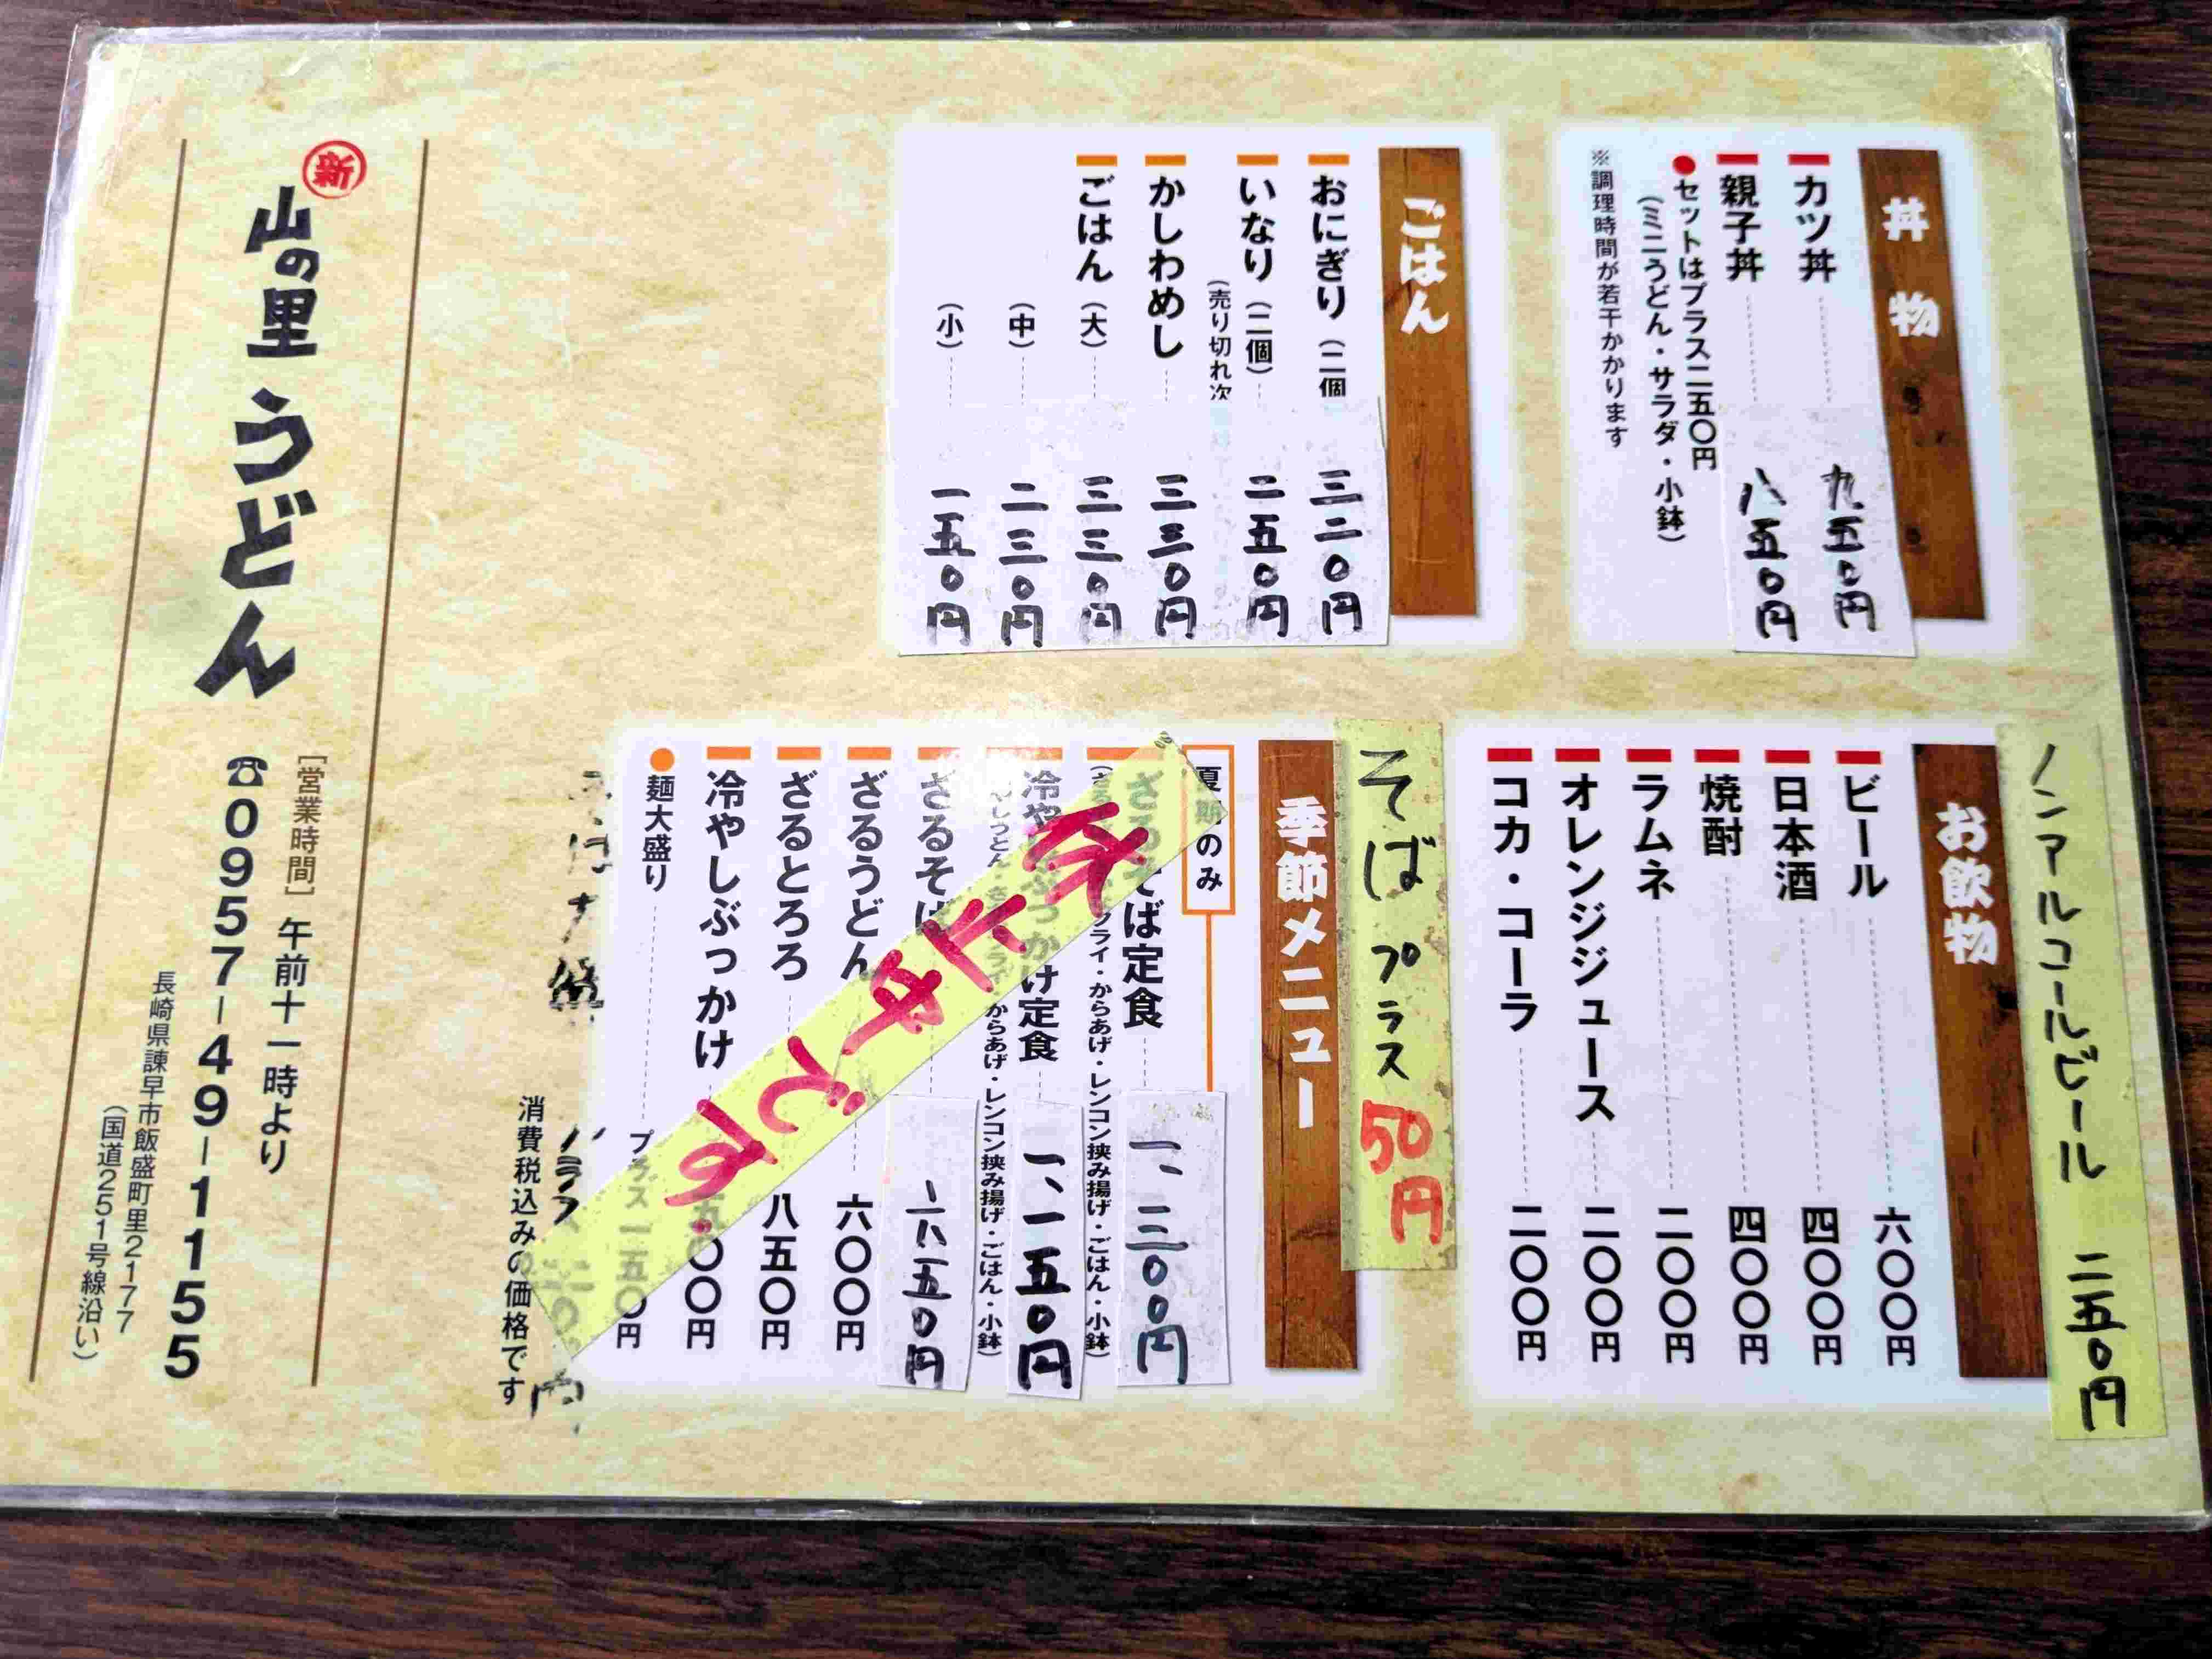 丼物
カツ丼 九五〇円
親子丼 八五〇円
セットはプラス二五〇円
(ミニうどん・サラダ・小鉢)
※調理時間が若干かかります
ごはん
おにぎり(二個 三二〇円
いなり(二個) 二五〇円
(売り切れ次
かしわめし 三三〇円
ごはん(大) 三三〇円
(中) 二三〇円
(小) 一五〇円
ノンアルコールビール 二五〇円
お飲物
ビール 六〇〇円
日本酒 四〇〇円
焼酎 四〇〇円
ラムネ 二〇〇円
オレンジジュース 二〇〇円
コカ・コーラ 二〇〇円
そばプラス50円
季節メニュー
夏期のみ
ざるそば定食 一、二〇〇円
フライ・からあげ・レンコン挟み揚げ・ごはん・小鉢)
冷やしぶっかけ定食 一、一五〇円
からあげ・レンコン挟み揚げ・ごはん・小鉢)
ざるそば 六五〇円
ざるうどん 六〇〇円
ざるとろろ 八五〇円
冷やしぶっかけ 〇〇円
麺大盛り プラス一五〇円
休止中です。
消費税込みの価格です
新
山の里うどん
[営業時間] 午前十一時より
☎0957-49-1155
長崎県諫早市飯盛町里2177
(国道251号線沿い)